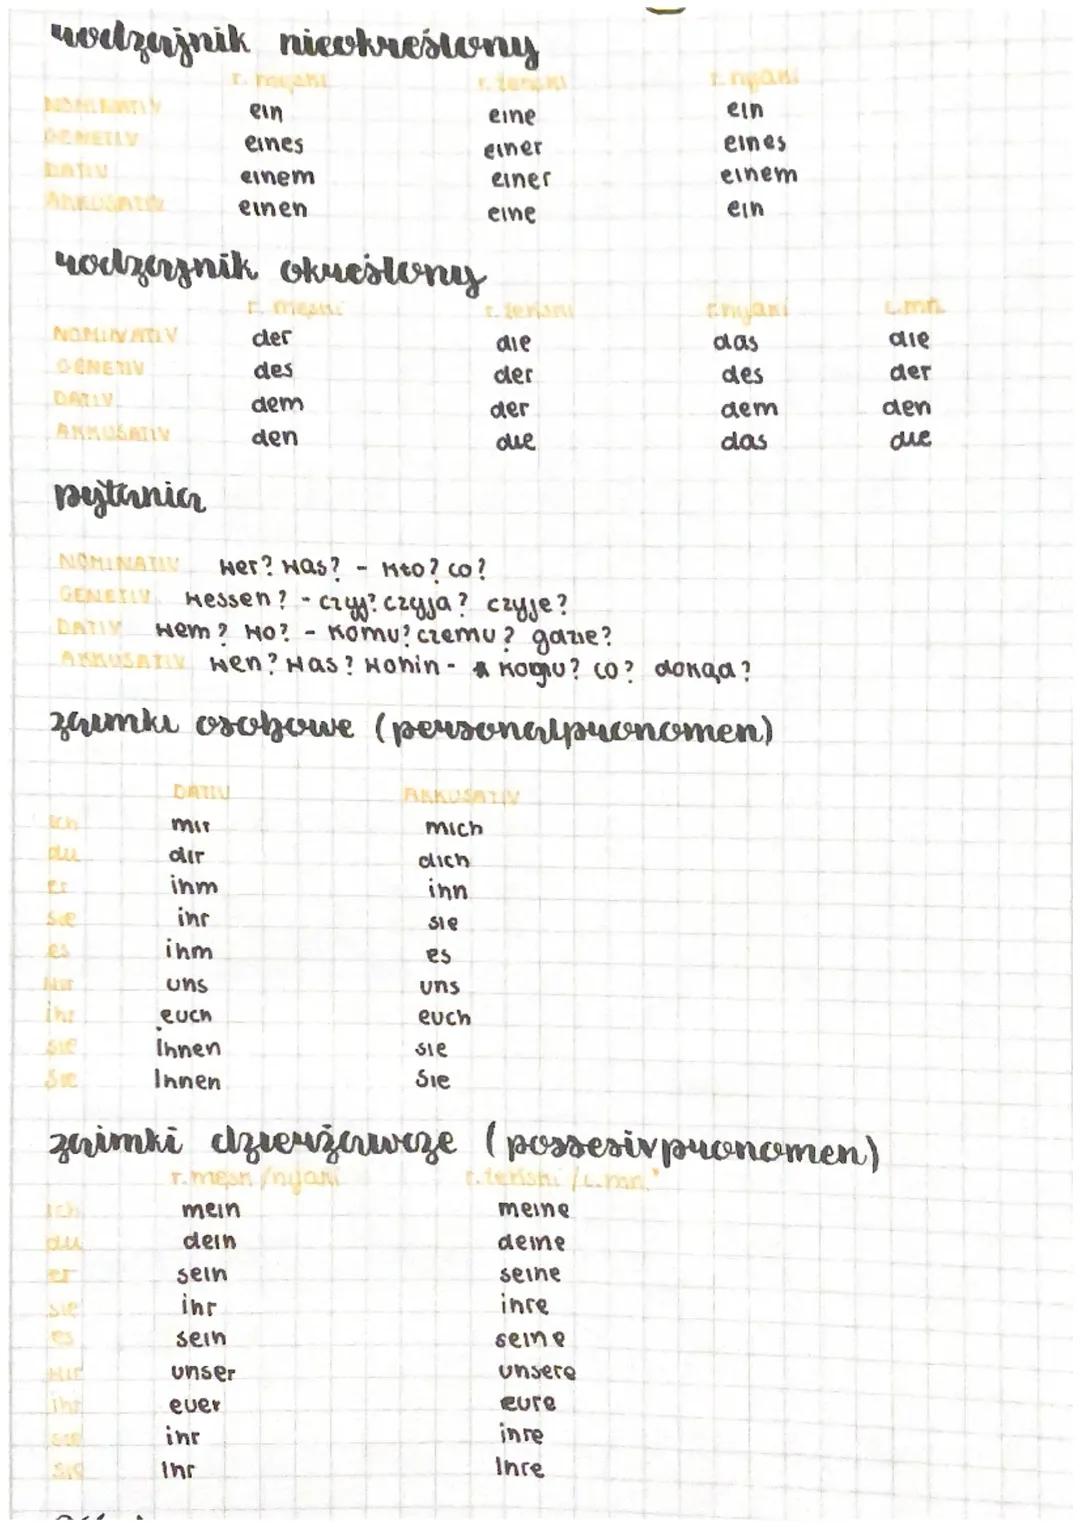 rodzajnik nieokreślony
r. męski r. żeński r. nijaki
NOMINATIV ein eine ein
GENETIV eines einer eines
DATIV einem einer einem
AKKUSATIV einen eine ein
rodzajnik określony
r. męski r. żeński r. nijaki l. mn.
NOMINATIV der die das die
GENETIV des der des der
DATIV dem der dem den
AKKUSATIV den die das die
pytania
NOMINATIV wer? was? - kto? co?
GENETIV wessen? - czyj? czyja? czyje?
DATIV wem? wo? - komu? czemu? gdzie?
AKKUSATIV wen? was? wohin - kogo? co? dokąd?
zaimki osobowe (personalpronomen)
DATIV AKKUSATIV
ich mir mich
du dir dich
er ihm ihn
sie ihr sie
es ihm es
wir uns uns
ihr euch euch
sie ihnen sie
Sie Ihnen Sie
zaimki dzierżawcze (possesivpronomen)
r. męski/nijaki r. żeński/l. mn.
ich mein meine
du dein deine
er sein seine
sie ihr ihre
es sein seine
wir unser unsere
ihr euer eure
sie ihr ihre
Sie Ihr Ihre